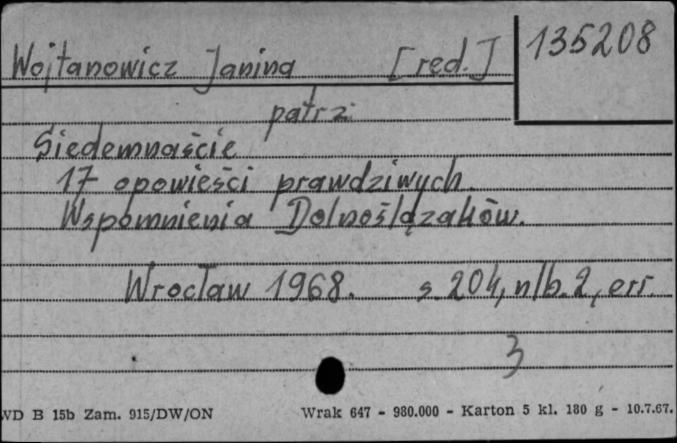 Wojtanowicz Janina [red.] 135208
patrz
Siedemnaście
17 opowieści prawdziwych.
Wspomnienia Dolnoślązaków.
Wrocław 1968. s. 204, nlb. 2, err.
3
WD B 15b Zam. 915/DW/ON Wrak 647 - 980.000 - Karton 5 kl. 180 g - 10.7.67.